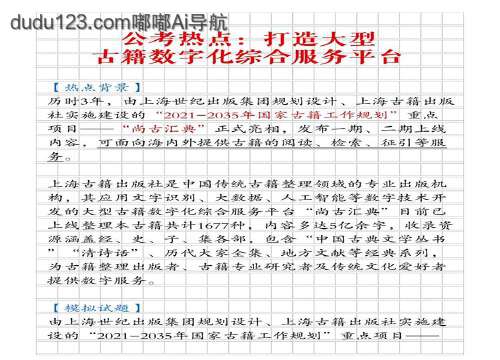 dudu123.com嘟嘟Ai导航
公考热点：打造大型
古籍数字化综合服务平台
【热点背景】
历时3年，由上海世纪出版集团规划设计、上海古籍出版
社实施建设的“2021-2035年国家古籍工作规划”重点
项目——“尚古汇典”正式亮相，发布一期、二期上线
内容，可面向海内外提供古籍的阅读、检索、征引等服
务。
上海古籍出版社是中国传统古籍整理领域的专业出版机
构，其应用文字识别、大数据、人工智能等数字技术开
发的大型古籍数字化综合服务平台“尚古汇典”目前已
上线整理本古籍共计1677种，内容多达5亿余字，收录资
源涵盖经、史、子、集各部，包含“中国古典文学丛书
”“清诗话”、历代大家全集、地方文献等经典系列，
为古籍整理出版者、古籍专业研究者及传统文化爱好者
提供数字服务。
【模拟试题】
由上海世纪出版集团规划设计、上海古籍出版社实施建
设的“2021-2035年国家古籍工作规划”重点项目——